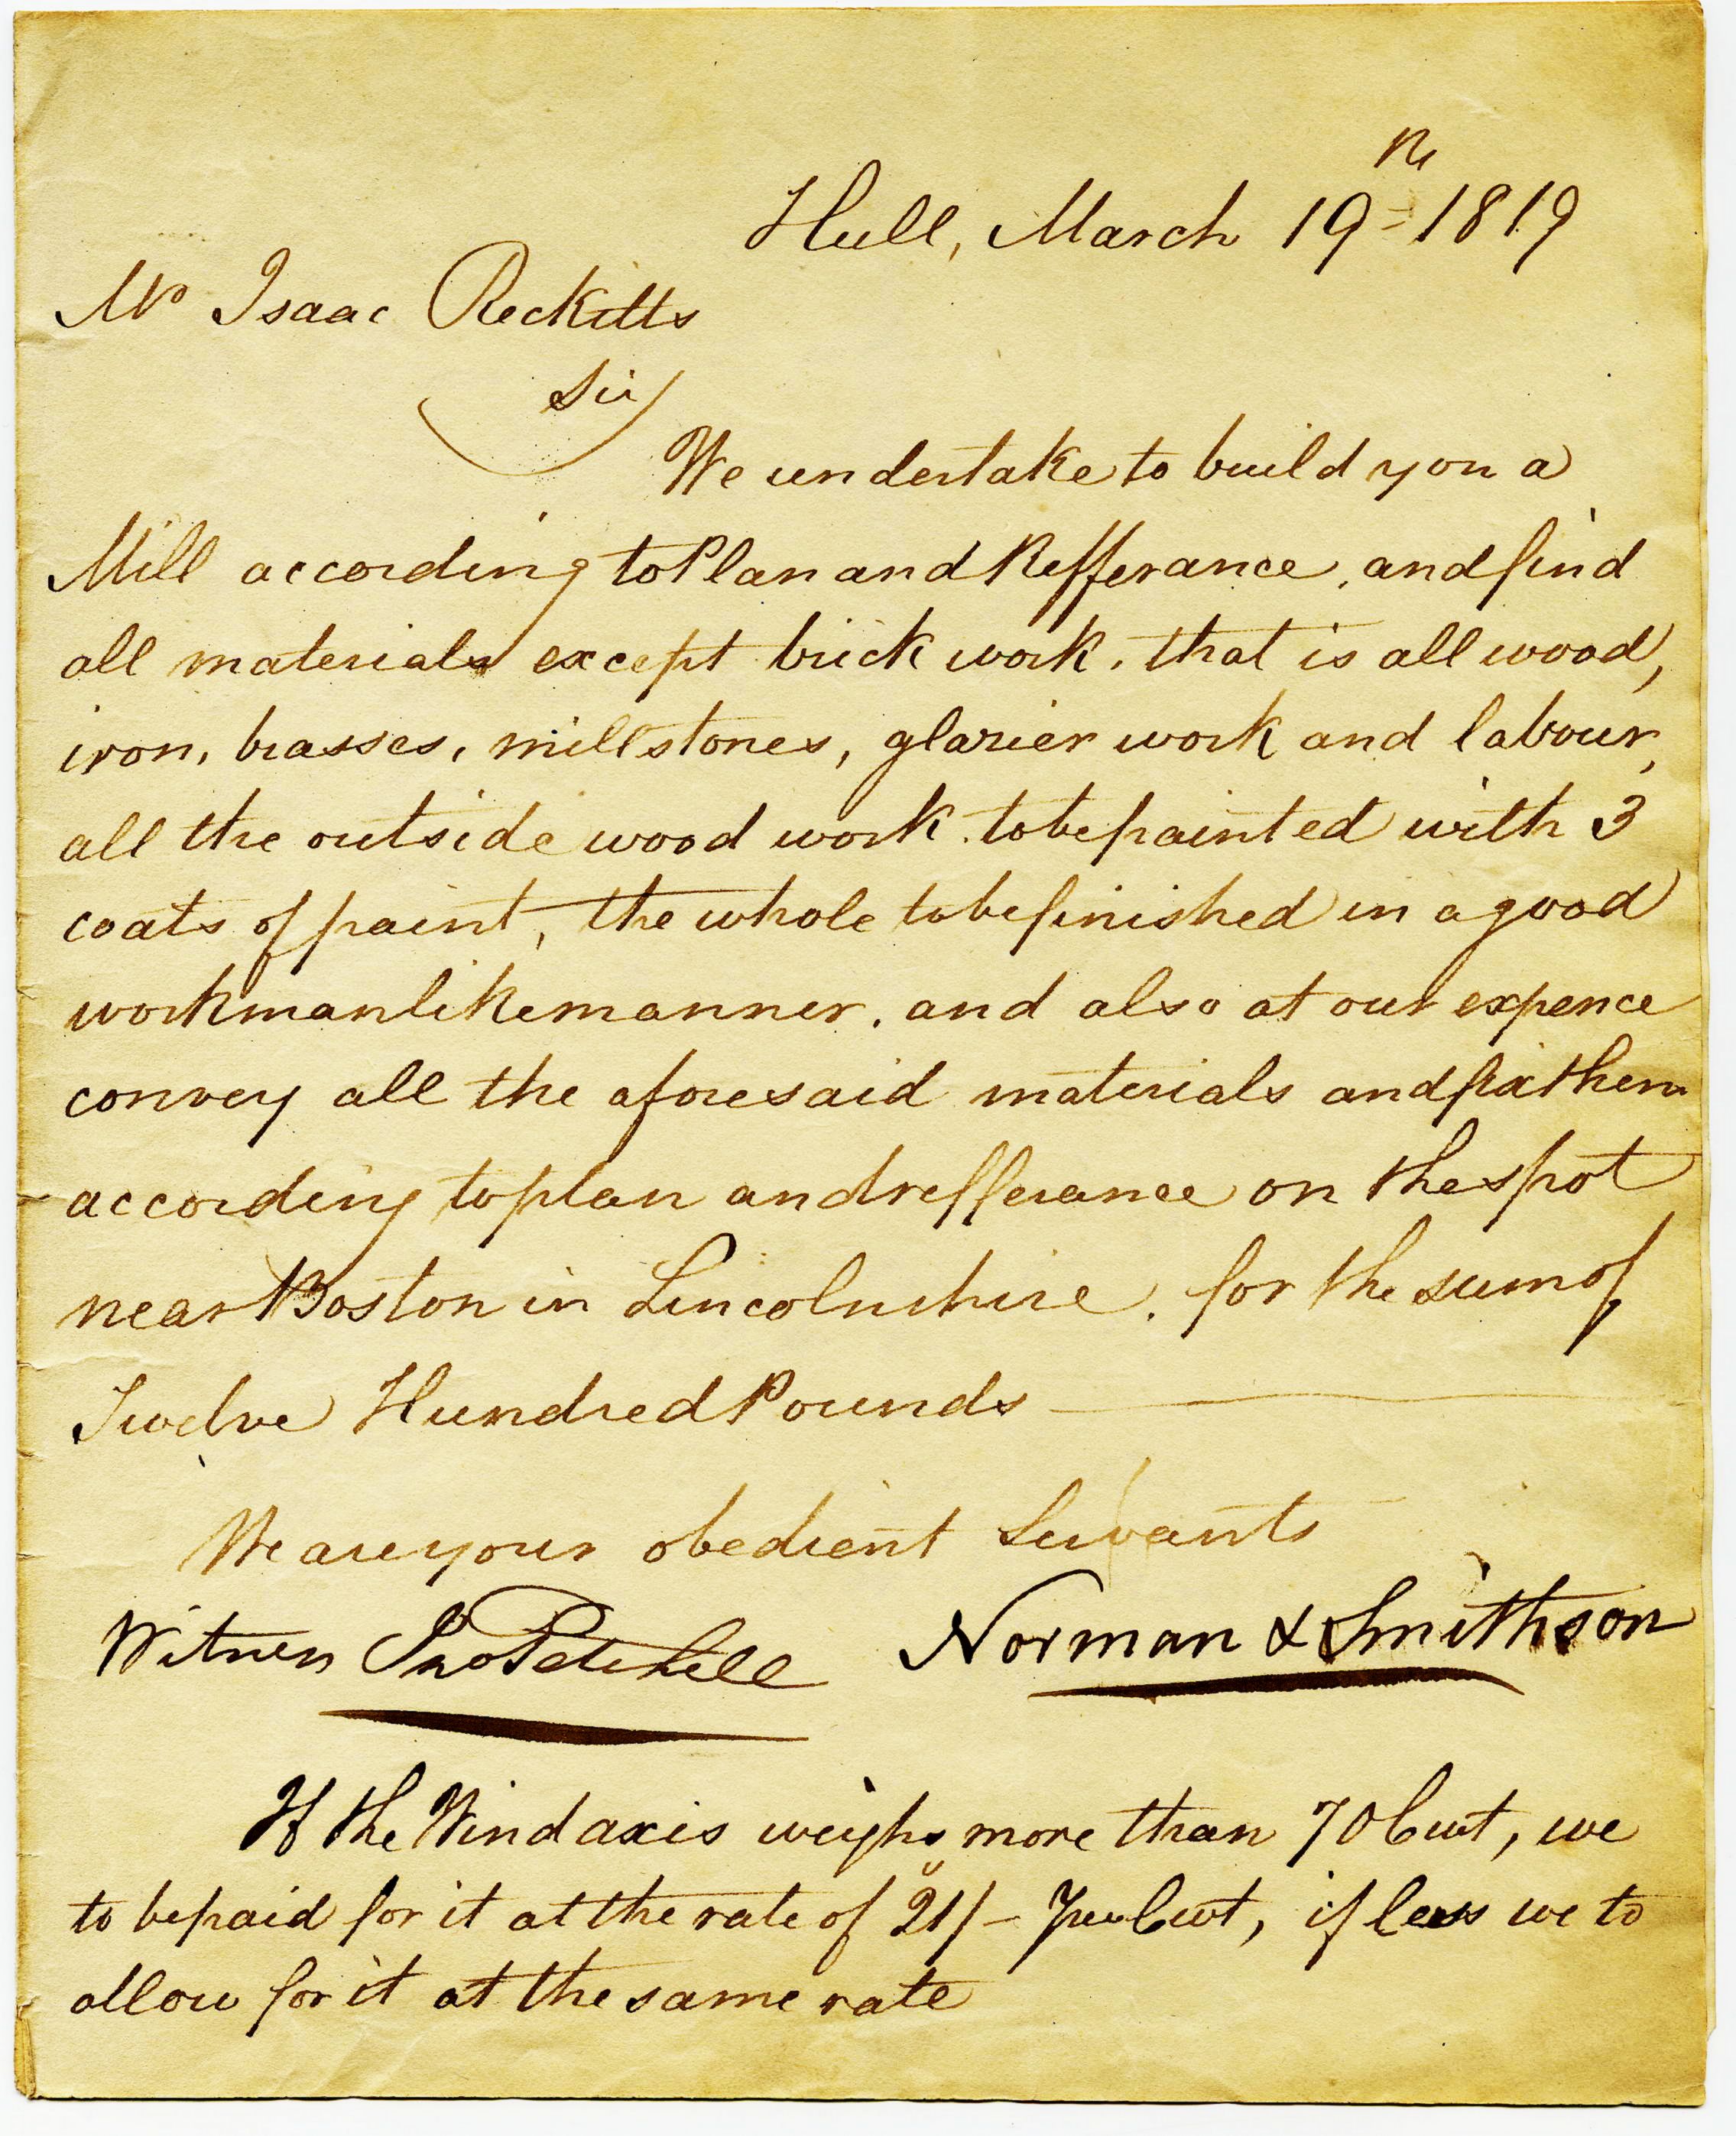 Hull, March 19th 1819
Mr Isaac Reckitts
Sir
We undertake to build you a
Mill according to Plan and Refferance, and find
all materials except brick work, that is all wood,
iron, brasses, millstones, glazier work and labour,
all the outside wood work to be painted with 3
coats of paint, the whole to be finished in a good
workmanlike manner, and also at our expence
convey all the aforesaid materials and fix them
according to plan and refferance on the spot
near Boston in Lincolnshire, for the sum of
Twelve Hundred Pounds
We are your obedient Servants
Witness Jno Petchell Norman & Smithson
If the Wind axis weighs more than 70 Cwt, we
to be paid for it at the rate of 21/- Per Cwt, if less we to
allow for it at the same rate